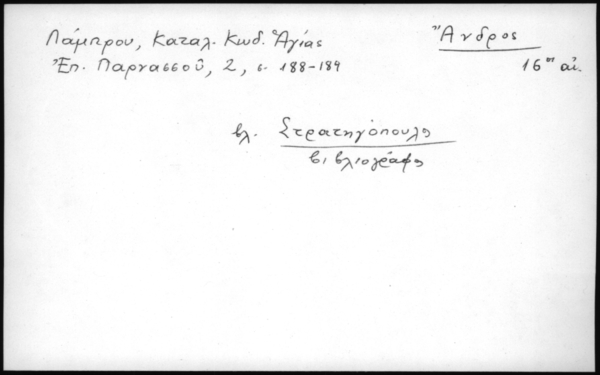 Λάμπρου, Καταλ. Κωδ. Ἁγίας
Ἐπ. Παρνασσοῦ, 2, σ. 188-189
Ἄνδρος
16ος αἰ.
βλ. Στρατηγόπουλος
βιβλιογράφος